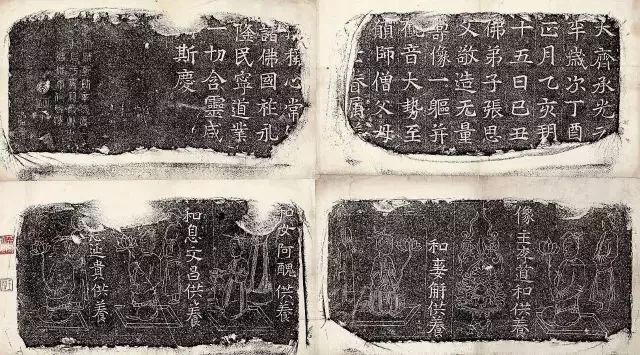 大齊承光元
年歲次丁酉
正月乙亥朔
十五日己丑
佛弟子張思
文敬造无量
壽像一軀并
觀音大勢至
願師僧父母
眷屬
心常
諸佛國祚永
隆民寧道業
一切含靈咸
斯慶
像主道和供養
和妻解供養
和女阿醜供養
和息文昌供養
貴供養